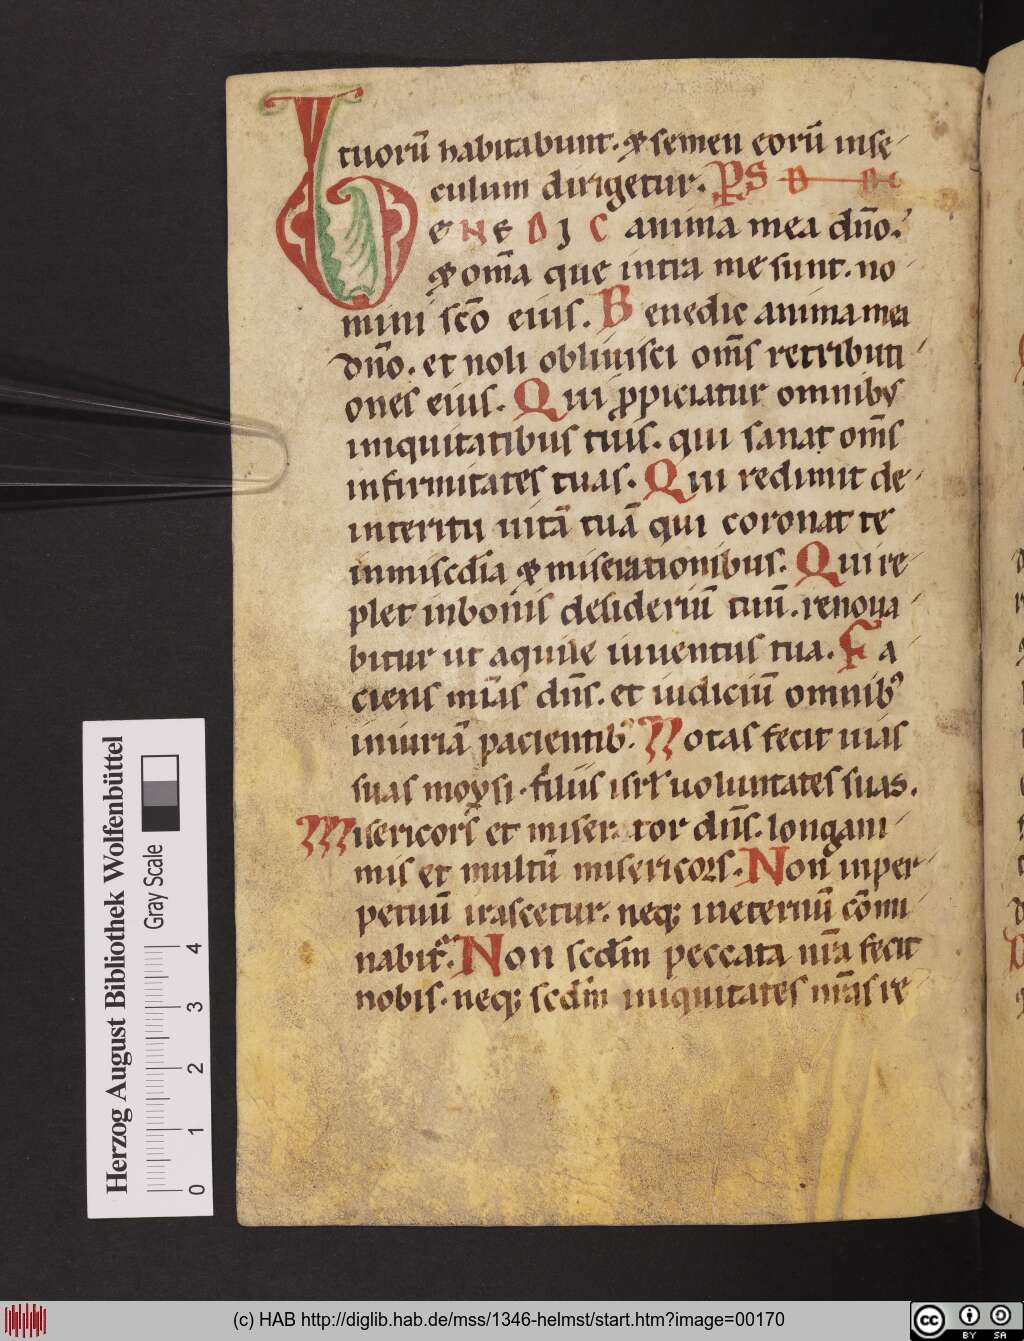 tuorū habitabunt. & semen eorū inse
culum dirigetur. PS D
BENEDIC anima mea dn̄o.
& om̄a que intra me sunt. no
mini sc̄o eius. Benedic anima mea
dn̄o. et noli obliuisci om̄s retributi
ones eius. Qui ꝓpiciatur omnibꝰ
iniquitatibus tuis. qui sanat om̄s
infirmitates tuas. Qui redimit de
interitu uitā tuā qui coronat te
inmiscd̄ia & miserationibus. Qui re
plet inbonis desideriū tuū. renoua
bitur ut aquile iuuentus tua. Fa
ciens mīas dn̄s. et iudiciū omnibꝰ
iniuriā pacientibꝰ. Notas fecit uias
suas moysi. filiis isrl̄ uoluntates suas.
Misericors et miserator dn̄s. longani
mis et multū misericors. Non inper
petuū irascetur. neq; ineternū cōmi
nabit᷑. Non scdm̄ peccata nr̄a fecit
nobis. neq; scdm̄ iniquitates nr̄as re
Herzog August Bibliothek Wolfenbüttel
Gray Scale
0 1 2 3 4
(c) HAB http://diglib.hab.de/mss/1346-helmst/start.htm?image=00170
cc BY SA